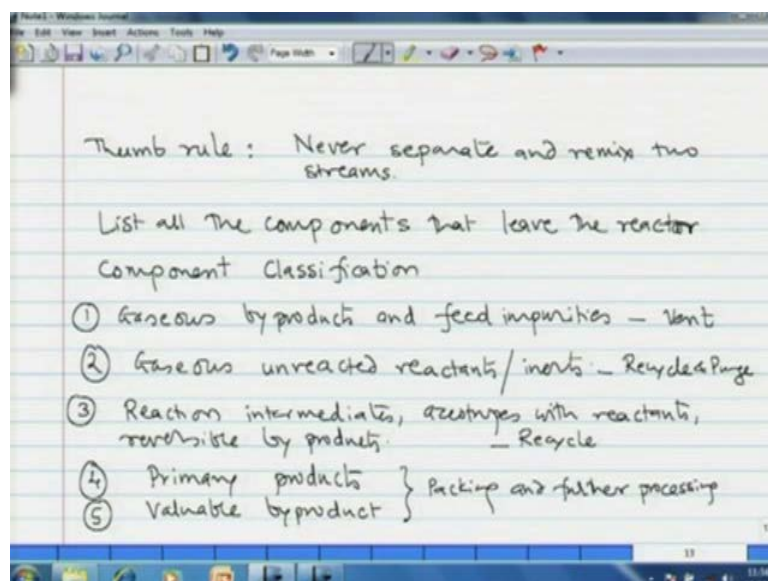 Note1 - Windows Journal
File Edit View Insert Actions Tools Help
Page Width
Thumb rule : Never separate and remix two
streams.
List all the components that leave the reactor
Component Classification
① Gaseous byproducts and feed impurities - Vent
② Gaseous unreacted reactants/inerts - Recycle & Purge
③ Reaction intermediates, azeotropes with reactants,
reversible byproducts. - Recycle
④ Primary products } Packing and further processing
⑤ Valuable byproduct
13